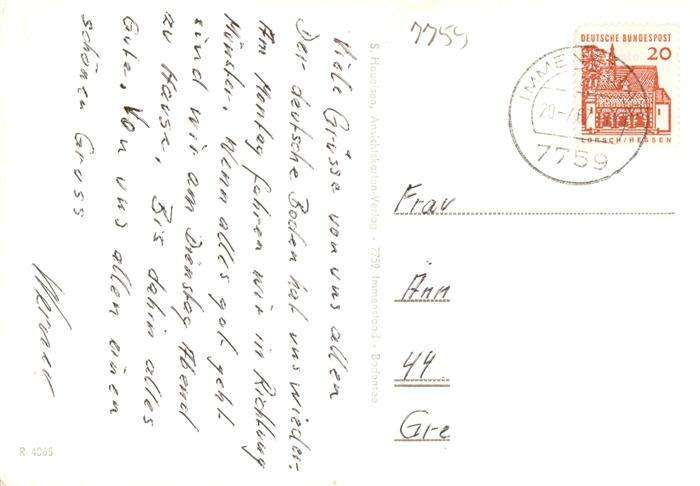 Viele Grüsse von uns allen
Der deutsche Boden hat uns wieder.
Am Montag fahren wir in Richtung
Münster. Wenn alles gut geht
sind wir am Dienstag Abend
zu Hause. Bis dahin alles
Gute. Von uns allen einen
schönen Gruss
Werner
R 4065
7759 Immenstaad - Bodensee
7759
DEUTSCHE BUNDESPOST
20
LORSCH/HESSEN
7759
Frau
Ann
44
Gre